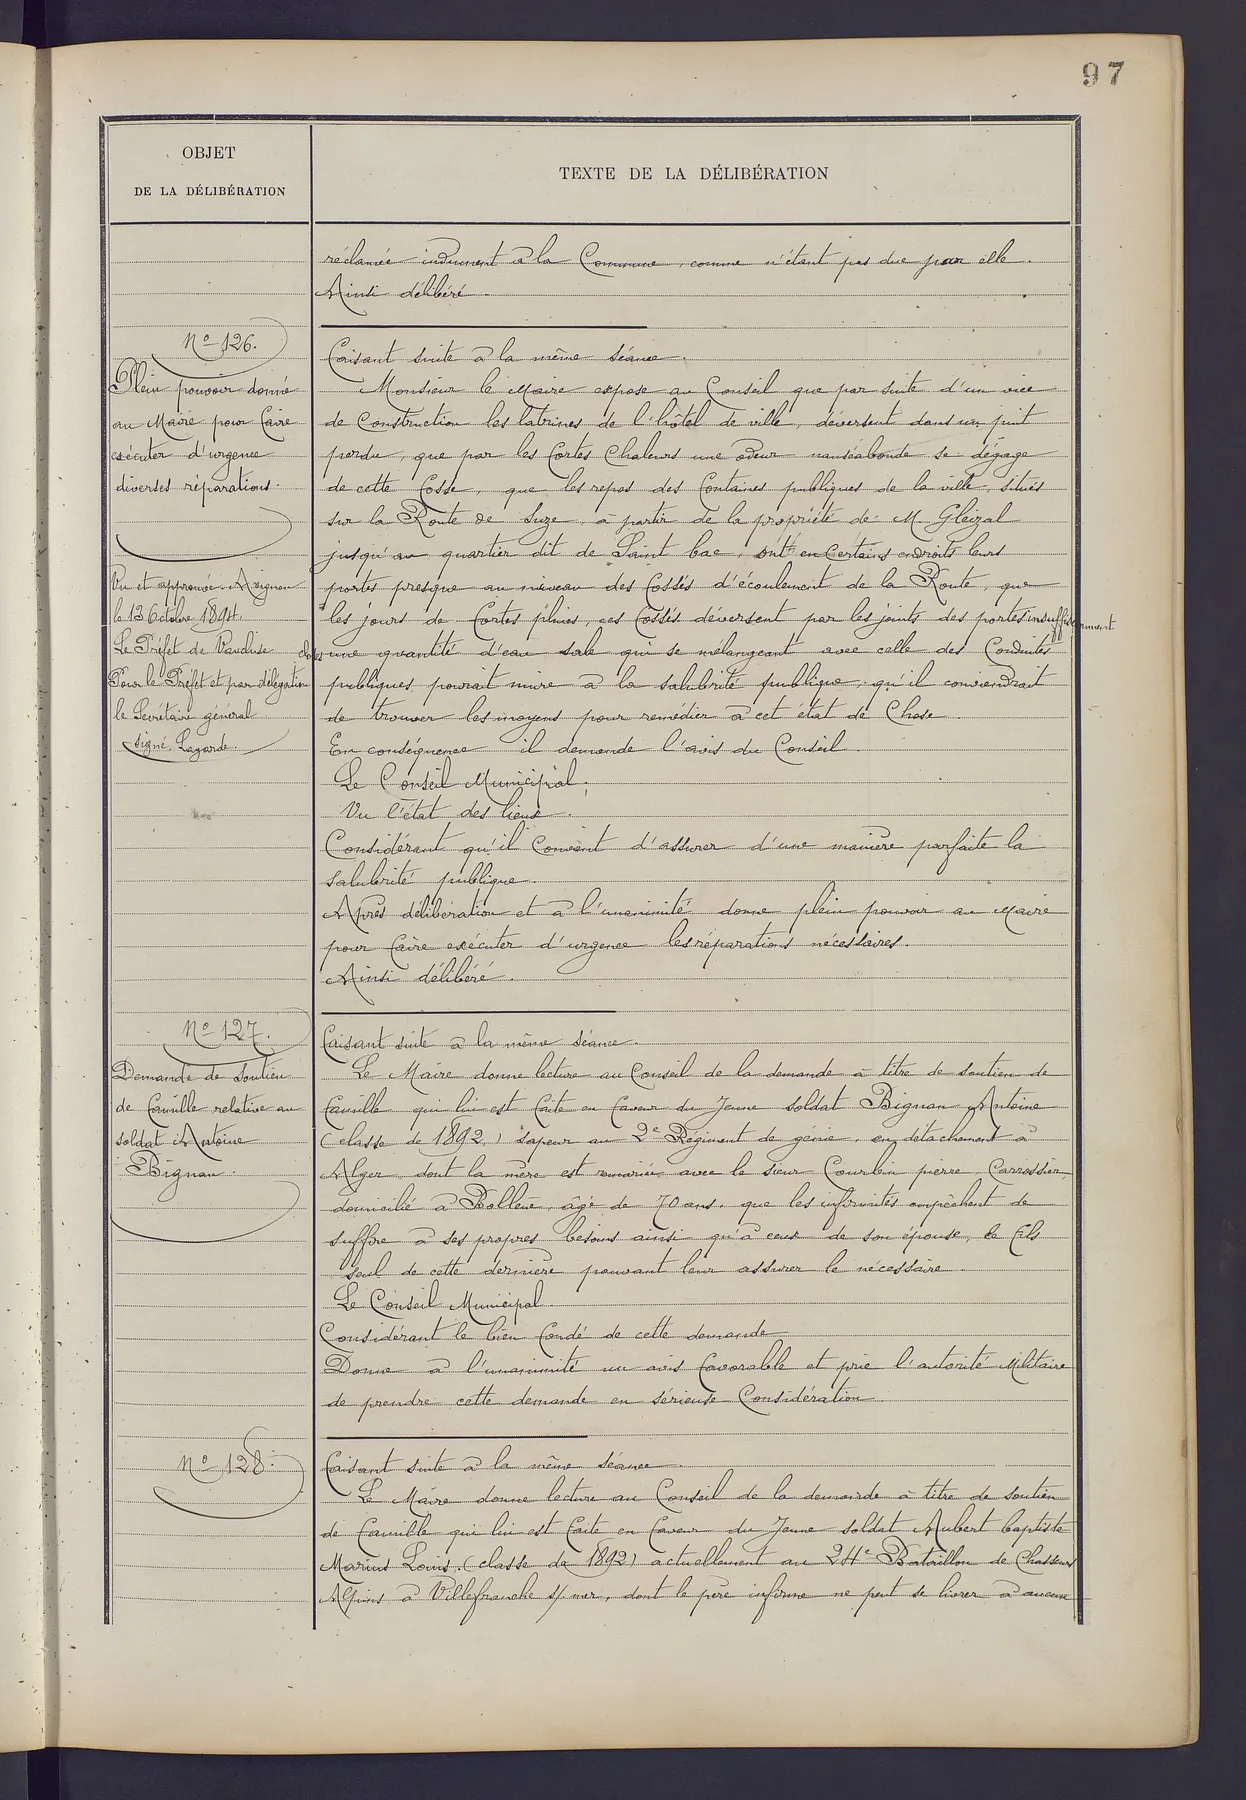 97
OBJET
DE LA DÉLIBÉRATION
TEXTE DE LA DÉLIBÉRATION
réclamée indument à la Commune, comme n'étant pas due par elle.
Ainsi délibéré.
No 126.
Plein pouvoir donné
au Maire pour faire
exécuter d'urgence
diverses réparations.
Vu et approuvée. Avignon
le 13 Octobre 1894.
Le Préfet de Vaucluse
Pour le Préfet et par délégation
le Secrétaire général
signé, Lagarde.
Faisant suite à la même séance.
Monsieur le Maire expose au Conseil que par suite d'un vice
de Construction les latrines de l'hôtel de ville, déversent dans un puit
perdu, que par les fortes Chaleurs une odeur nauséabonde se dégage
de cette fosse, que les repos des fontaines publiques de la ville, situés
sur la Route de Suze, à partir de la propriété de M. Gleizal
jusqu'au quartier dit de Saint bac, ont en Certains endroits leurs
portes presque au niveau des fossés d'écoulement de la Route, que
les jours de fortes pluies, ces fossés déversent par les joints des portes insuffisamment
closes une quantité d'eau sale qui se mélangeant avec celle des Conduites
publiques pourait nuire à la salubrité publique, qu'il conviendrait
de trouver les moyens pour remédier à cet état de Chose.
En conséquence il demande l'avis du Conseil.
Le Conseil Municipal;
Vu l'état des lieux.
Considérant qu'il Convient d'assurer d'une manière parfaite la
salubrité publique.
Après délibération et à l'unanimité donne plein pouvoir au Maire
pour faire exécuter d'urgence les réparations nécessaires.
Ainsi délibéré.
No 127.
Demande de soutien
de famille relative au
soldat Antoine
Bignan.
Faisant suite à la même séance.
Le Maire donne lecture au Conseil de la demande à titre de soutien de
famille qui lui est faite en faveur du Jeune soldat Bignan Antoine
(classe de 1892,) sapeur au 2e Régiment de génie, en détachement à
Alger, dont la mère est remariée avec le sieur Courbu pierre, Carrossier,
domicilié à Bollène, âgé de 70 ans, que les infirmités empêchent de
suffire à ses propres besoins ainsi qu'à ceux de son épouse, le fils
seul de cette dernière pouvant leur assurer le nécessaire.
Le Conseil Municipal.
Considérant le bien fondé de cette demande
Donne à l'unanimité un avis favorable et prie l'autorité Militaire
de prendre cette demande en sérieuse Considération.
No 128.
Faisant suite à la même séance.
Le Maire donne lecture au Conseil de la demande à titre de soutien
de famille qui lui est faite en faveur du Jeune soldat Aubert baptiste
Marius Louis, (classe de 1892) actuellement au 24e Bataillon de Chasseurs
Alpins à Villefranche s/ mer, dont le père infirme ne peut se livrer à aucun